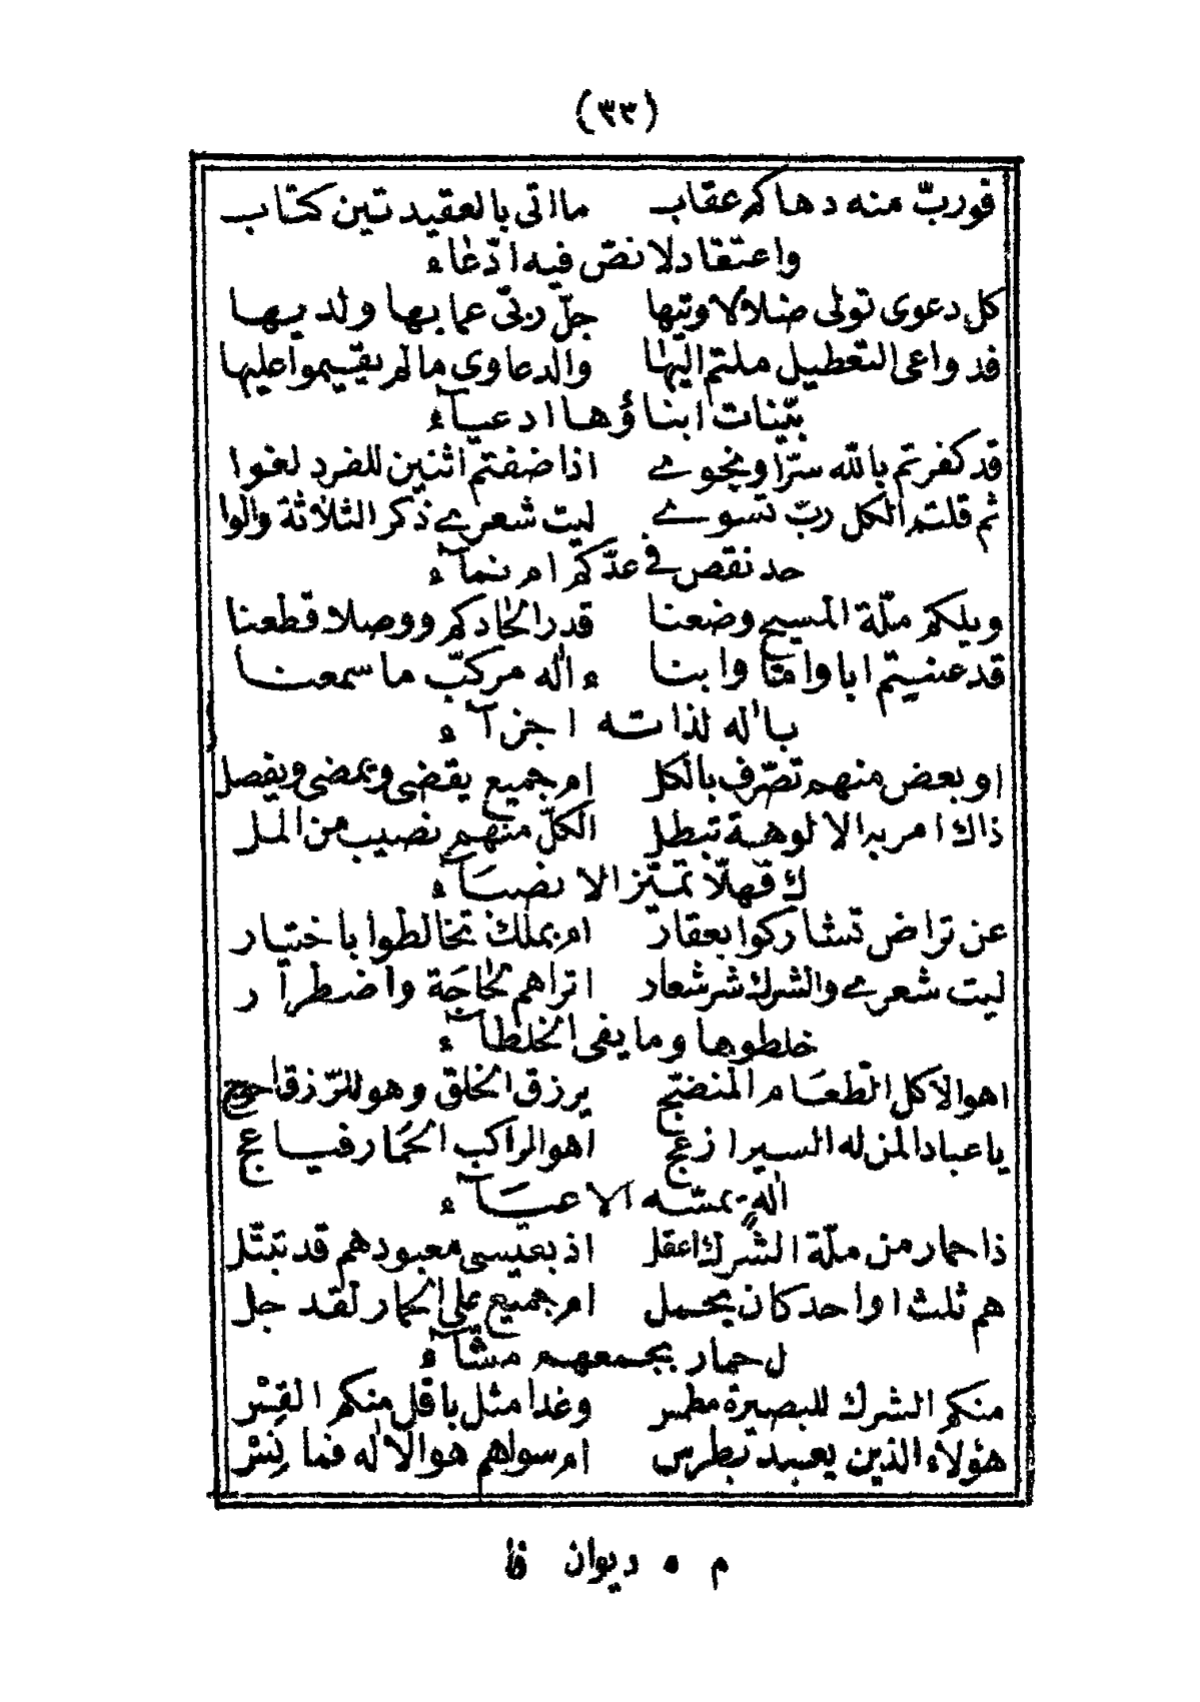 (٣٣)
فوربّ منه دهاكم عقاب ما اتى بالعقيدتين كتاب
واعتقاد لا نصّ فيه ادّعاء
كل دعوى تولى ضلالا وتيها جلّ ربّى عما بها ولديها
قد دواعى التعطيل ملتم اليها والدعاوى ما لم يقيموا عليها
بيّنات ابناؤها ادعيآء
قد كفرتم بالله سرّا ونجوے اذا ضفتم اثنين للفرد لغوا
ثم قلتم الكل ربّ تسوے ليت شعرے ذكر الثلاثة والوا
حد نقص فى عدّكم ام نمآء
ويلكم ملّة المسيح وضعنا قدر الحادكم ووصلا قطعنا
قد عنيتم ابا وامّا وابنا ء اله مركبّ ما سمعنا
باله لذاته اجزآء
او بعض منهم تصّرف بالكل ام جميع يقضى ويمضى ويفصل
ذاك امر به الالوهة تبطل الكلّ منهم نصيب من المل
ك فهلّا تميّز الانصبآء
عن تراض تشاركوا بعقار ام بملك تخالطوا باختيار
ليت شعرے والشرك شر شعار اتراهم لحاجة واضطرار
خلطوها وما يفى الخلطآء
اهو الآكل الطعام المنضبّج يرزق الخلق وهو للرّزق احوج
يا عباد المن له السير ازعج اهو الراكب الحمار فيا عج
ز اله يمسّه الاعيآء
ذا حمار من ملّة الشرك اعقل اذ بعيسى معبودهم قد تبتّل
هم ثلث او احد كان يحمل ام جميع على الحمار لقد جل
ل حمار بجمعهم مشّآء
منكم الشرك للبصيرة مطمس وغدا مثل باقل منكم القس
هؤلاء الذين يعبد بطرس ام سواهم هو الاله فما نس
م ٥ ديوان فا